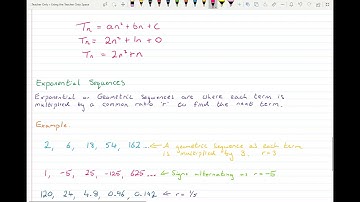 Teacher Only - Using the Teacher Only Space
Tn = an² + bn + c
Tn = 2n² + 1n + 0
Tn = 2n² + n
Exponential Sequences
Exponential or Geometric Sequences are where each term is
multiplied by a common ratio 'r' to find the next term.
Example.
2, 6, 18, 54, 162... ← A geometric sequence as each term
is multiplied by 3. r = 3
1, -5, 25, -125, 625... ← Signs alternating as r = -5
120, 24, 4.8, 0.96, 0.192 ← r = 1/5